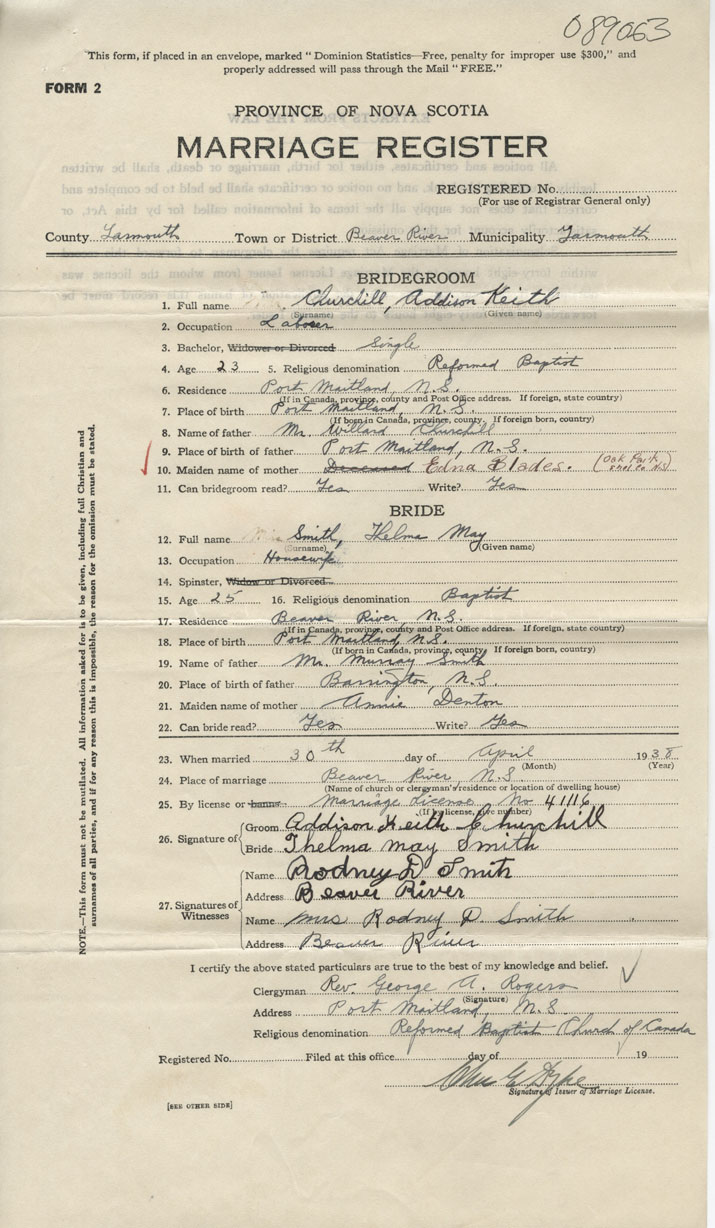 089063
"This form, if placed in an envelope, marked "Dominion Statistics—Free, penalty for improper use $300," and
properly addressed will pass through the Mail "FREE."
FORM 2
PROVINCE OF NOVA SCOTIA
MARRIAGE REGISTER
REGISTERED No.
(For use of Registrar General only)
County Yarmouth Town or District Beaver River Municipality Yarmouth
BRIDEGROOM
1. Full name Churchill, Addison Keith
(Surname) (Given name)
2. Occupation Laborer
3. Bachelor, Widower or Divorced Single
4. Age 23 5. Religious denomination Reformed Baptist
6. Residence Port Maitland, N.S.
(If in Canada, province, county and Post Office address. If foreign, state country)
7. Place of birth Port Maitland, N.S.
(If born in Canada, province, county. If foreign born, country)
8. Name of father Mr. Willard Churchill
9. Place of birth of father Port Maitland, N.S.
10. Maiden name of mother Deceased Edna Blades. (Oak Park, Shel. Co. N.S.)
11. Can bridegroom read? Yes Write? Yes
BRIDE
12. Full name Smith, Thelma May
(Surname) (Given name)
13. Occupation Housewife
14. Spinster, Widow or Divorced
15. Age 25 16. Religious denomination Baptist
17. Residence Beaver River, N.S.
(If in Canada, province, county and Post Office address. If foreign, state country)
18. Place of birth Port Maitland, N.S.
(If born in Canada, province, county. If foreign born, country)
19. Name of father Mr. Murray Smith
20. Place of birth of father Barrington, N.S.
21. Maiden name of mother Annie Denton
22. Can bride read? Yes Write? Yes
23. When married 30th day of April 1938
(Month) (Year)
24. Place of marriage Beaver River, N.S.
(Name of church or clergyman's residence or location of dwelling house)
25. By license or banns Marriage License No 41116
(If by license, give number)
26. Signature of Groom Addison Keith Churchill
Bride Thelma May Smith
27. Signatures of Witnesses
Name Rodney D Smith
Address Beaver River
Name Mrs Rodney D. Smith
Address Beaver River
I certify the above stated particulars are true to the best of my knowledge and belief.
Clergyman Rev. George A. Rogers
(Signature)
Address Port Maitland, N.S.
Religious denomination Reformed Baptist Church of Canada
Registered No. Filed at this office day of 19
Signature of Issuer of Marriage License.
[SEE OTHER SIDE]
NOTE.—This form must not be mutilated. All information asked for is to be given, including full Christian and
surnames of all parties, and if for any reason this is impossible, the reason for the omission must be stated.